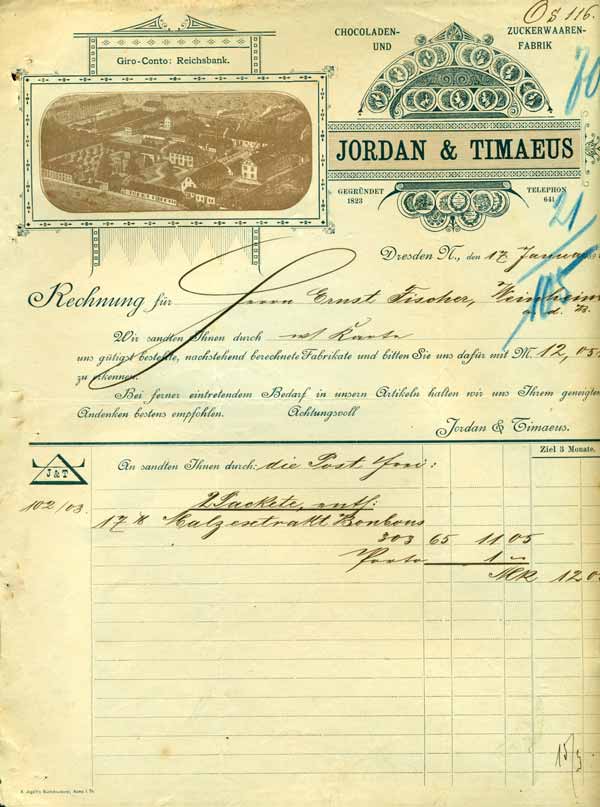 O 116.
CHOCOLADEN- UND ZUCKERWAAREN- FABRIK
Giro-Conto: Reichsbank.
70
JORDAN & TIMAEUS
GEGRÜNDET 1823
TELEPHON 641
21
105
Dresden N., den 17. Januar
Rechnung für Herrn Ernst Fischer, Weinheim
a. d. B.
Wir sandten Ihnen durch Karte
uns gütigst bestellte, nachstehend berechnete Fabrikate und bitten Sie uns dafür mit M. 12,05
zu erkennen.
Bei ferner eintretendem Bedarf in unsern Artikeln halten wir uns Ihrem geneigten
Andenken bestens empfohlen. Achtungsvoll
Jordan & Timaeus.
Ziel 3 Monate.
J&T
An sandten Ihnen durch: die Post frei:
102/03.
2 Packete, enth:
17 Malzextrakt Bonbons
303 65 11 05
Porto 1 —
Mk 12 0
15/3